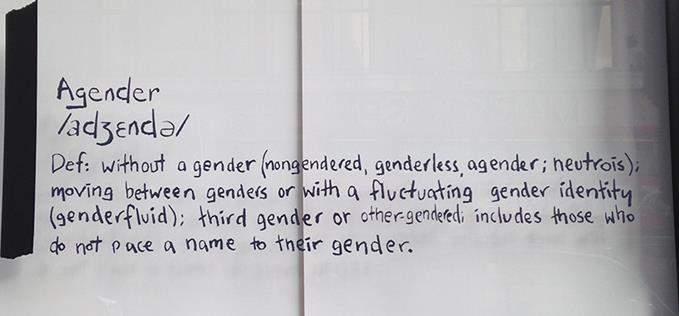 Agender
/adʒɛndə/
Def: without a gender (nongendered, genderless, agender; neutrois);
moving between genders or with a fluctuating gender identity
(genderfluid); third gender or other-gendered; includes those who
do not pace a name to their gender.